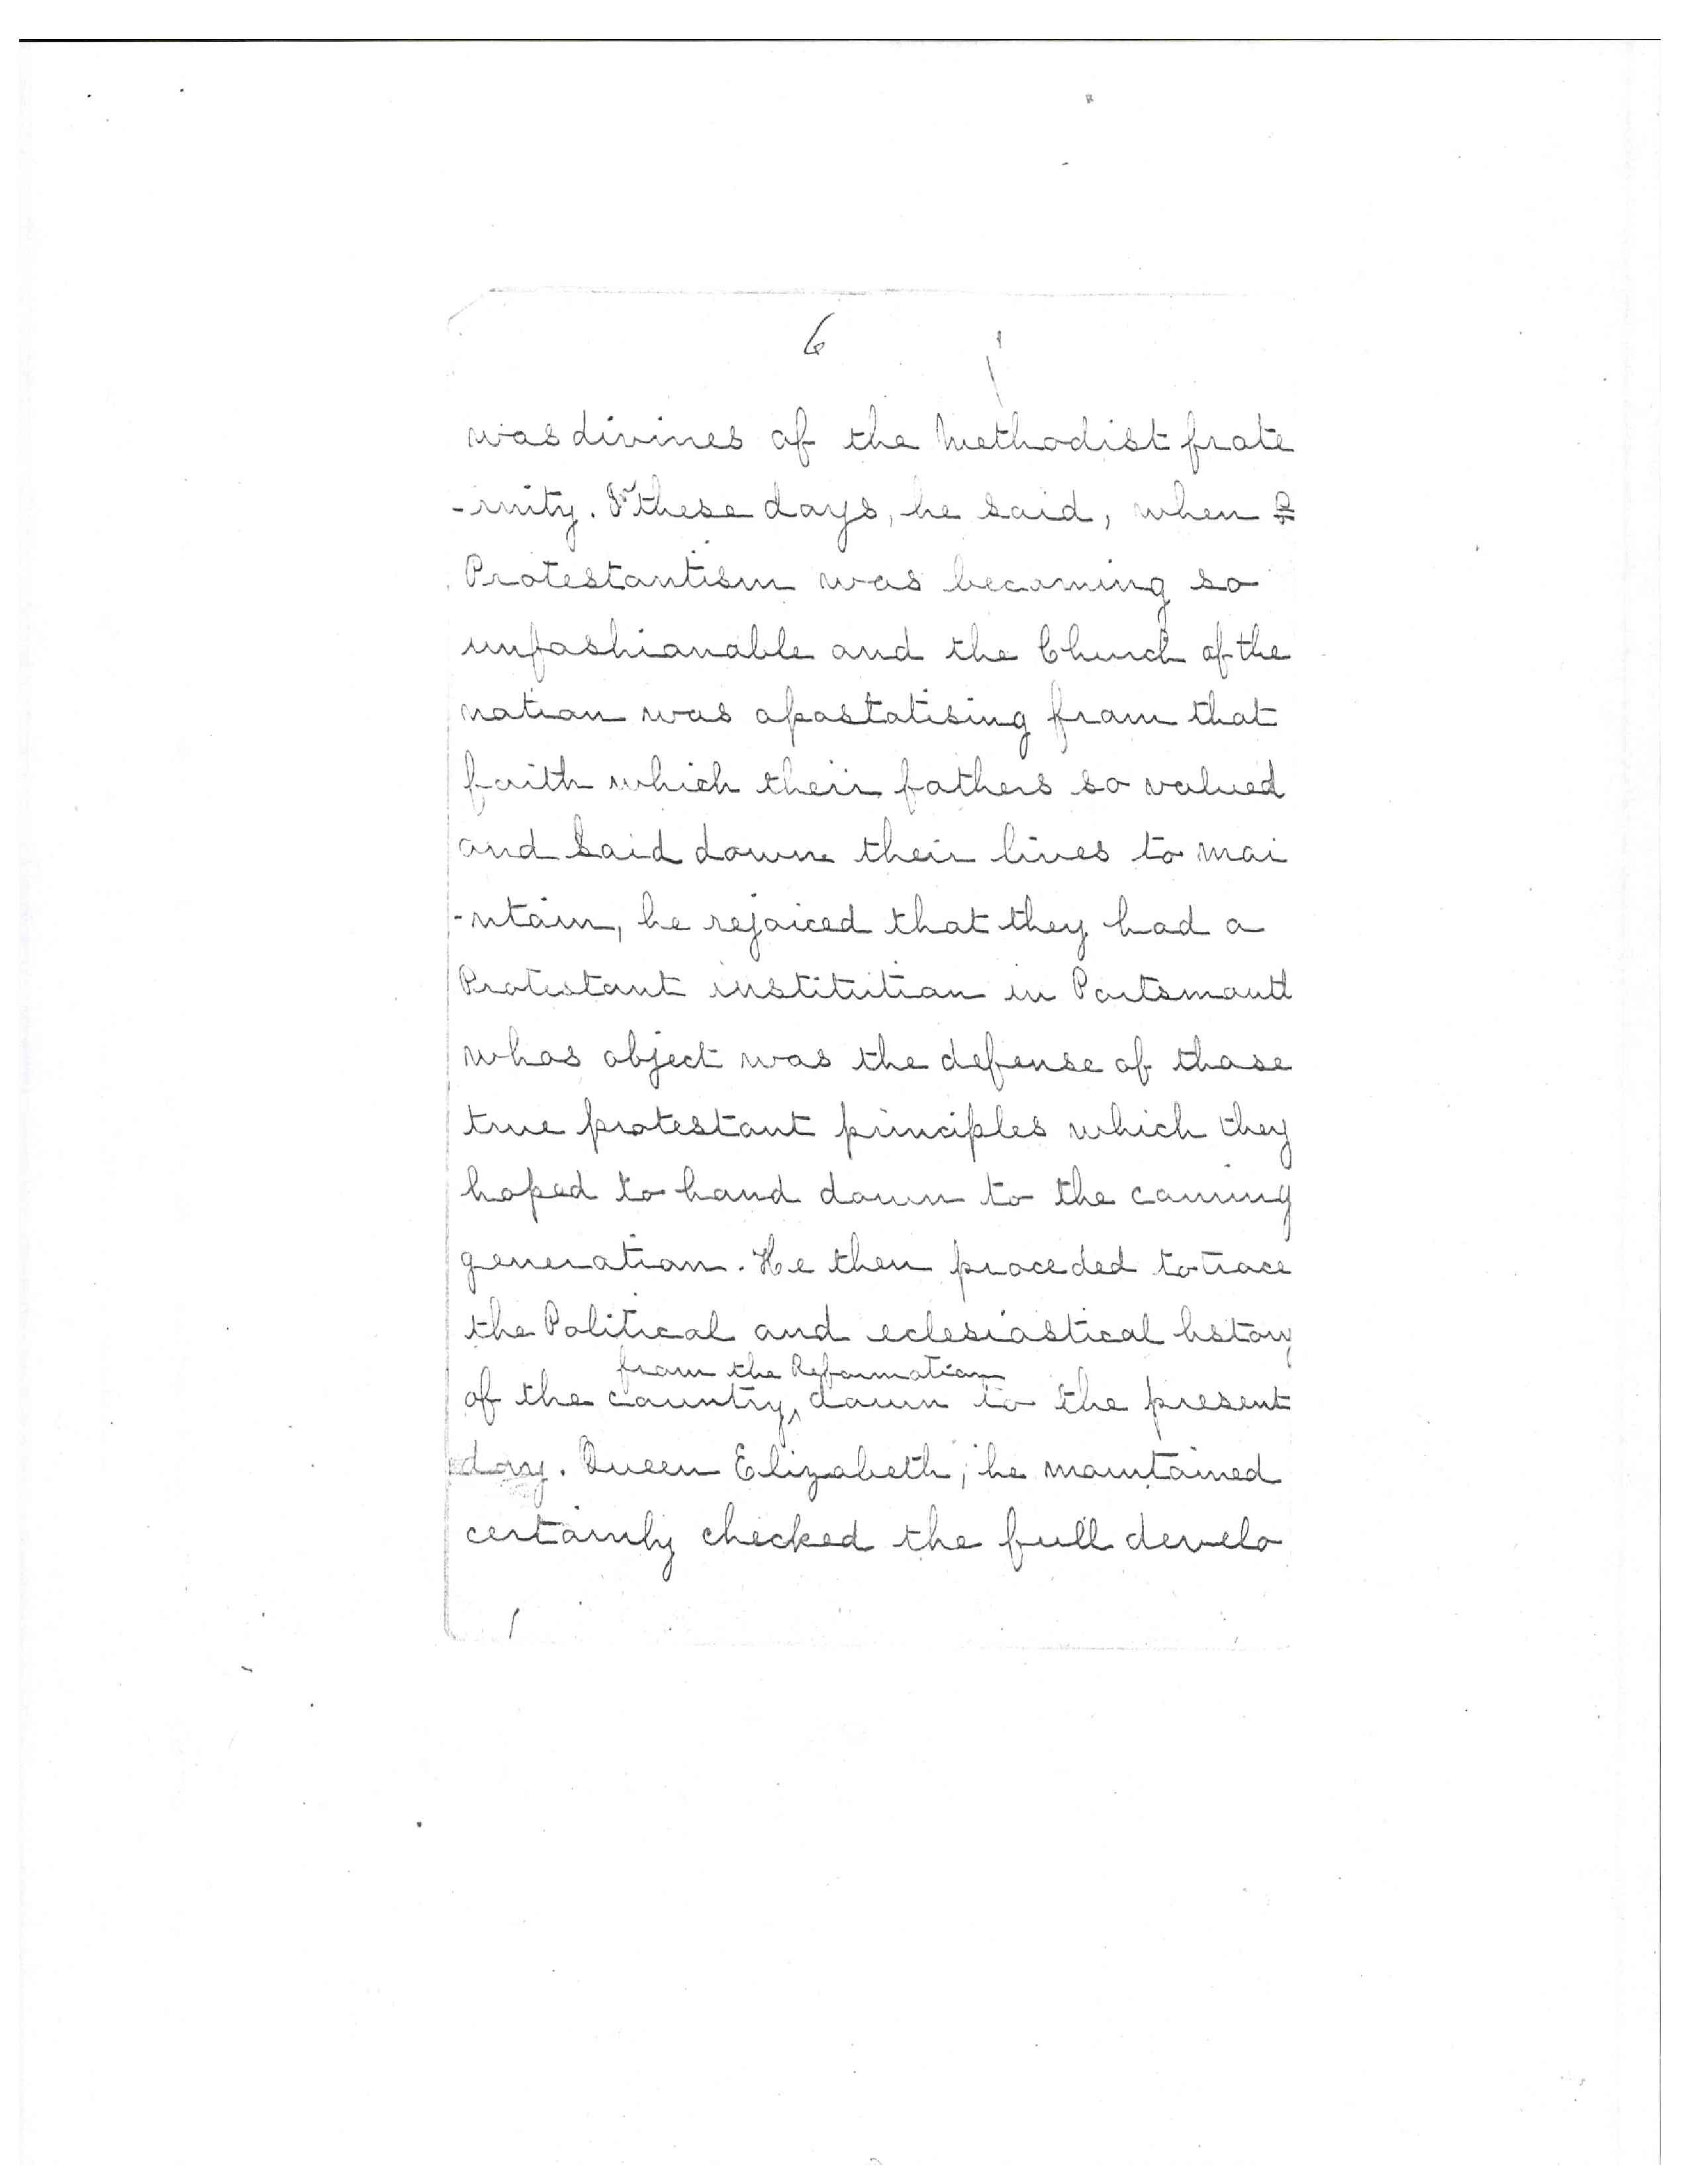 6
was divines of the Methodist frate
-rnity. In these days, he said, when
Protestantism was becoming so
unfashionable and the Church of the
nation was apostatising from that
faith which their fathers so valued
and laid down their lives to mai
-ntain, he rejoiced that they had a
Protestant institution in Portsmouth
whos object was the defense of those
true protestant principles which they
hoped to hand down to the coming
generation. He then proceded to trace
the Political and eclesiastical hstory
from the Reformation
of the country, down to the present
day. Queen Elizabeth, he maintained
certainly checked the full develo